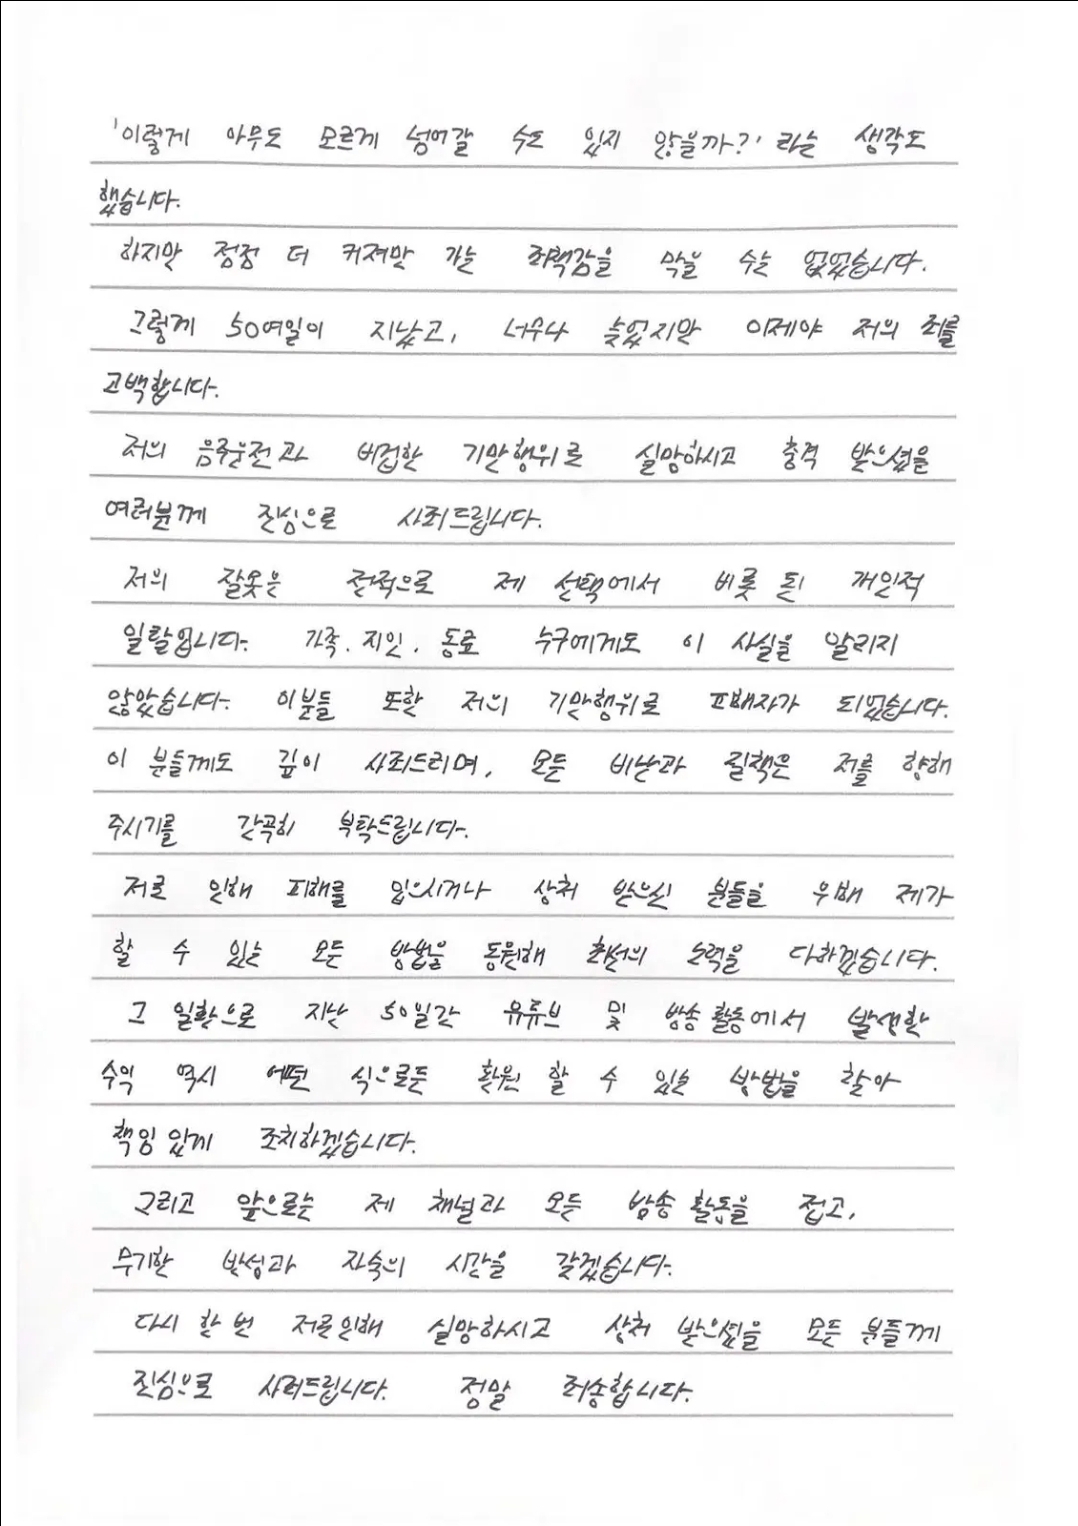 '이렇게 아무도 모르게 넘어갈 수도 있지 않을까?' 라는 생각도
했습니다.
하지만 점점 더 커져만 가는 죄책감을 막을 수는 없었습니다.
그렇게 50여일이 지났고, 너무나 늦었지만 이제야 저의 죄를
고백합니다.
저의 음주운전과 비겁한 기만행위로 실망하시고 충격 받으셨을
여러분께 진심으로 사죄드립니다.
저의 잘못은 전적으로 제 선택에서 비롯 된 개인적
일탈입니다. 가족, 지인, 동료 누구에게도 이 사실을 알리지
않았습니다. 이분들 또한 저의 기만행위로 피해자가 되었습니다.
이 분들께도 깊이 사죄드리며, 모든 비난과 질책은 저를 향해
주시기를 간곡히 부탁드립니다.
저로 인해 피해를 입으시거나 상처 받으신 분들을 위해 제가
할 수 있는 모든 방법을 동원해 최선의 노력을 다하겠습니다.
그 일환으로 지난 50일간 유튜브 및 방송 활동에서 발생한
수익 역시 어떤 식으로든 환원 할 수 있는 방법을 찾아
책임 있게 조치하겠습니다.
그리고 앞으로는 제 채널과 모든 방송 활동을 접고,
무기한 반성과 자숙의 시간을 갖겠습니다.
다시 한 번 저로인해 실망하시고 상처 받으셨을 모든 분들께
진심으로 사죄드립니다. 정말 죄송합니다.